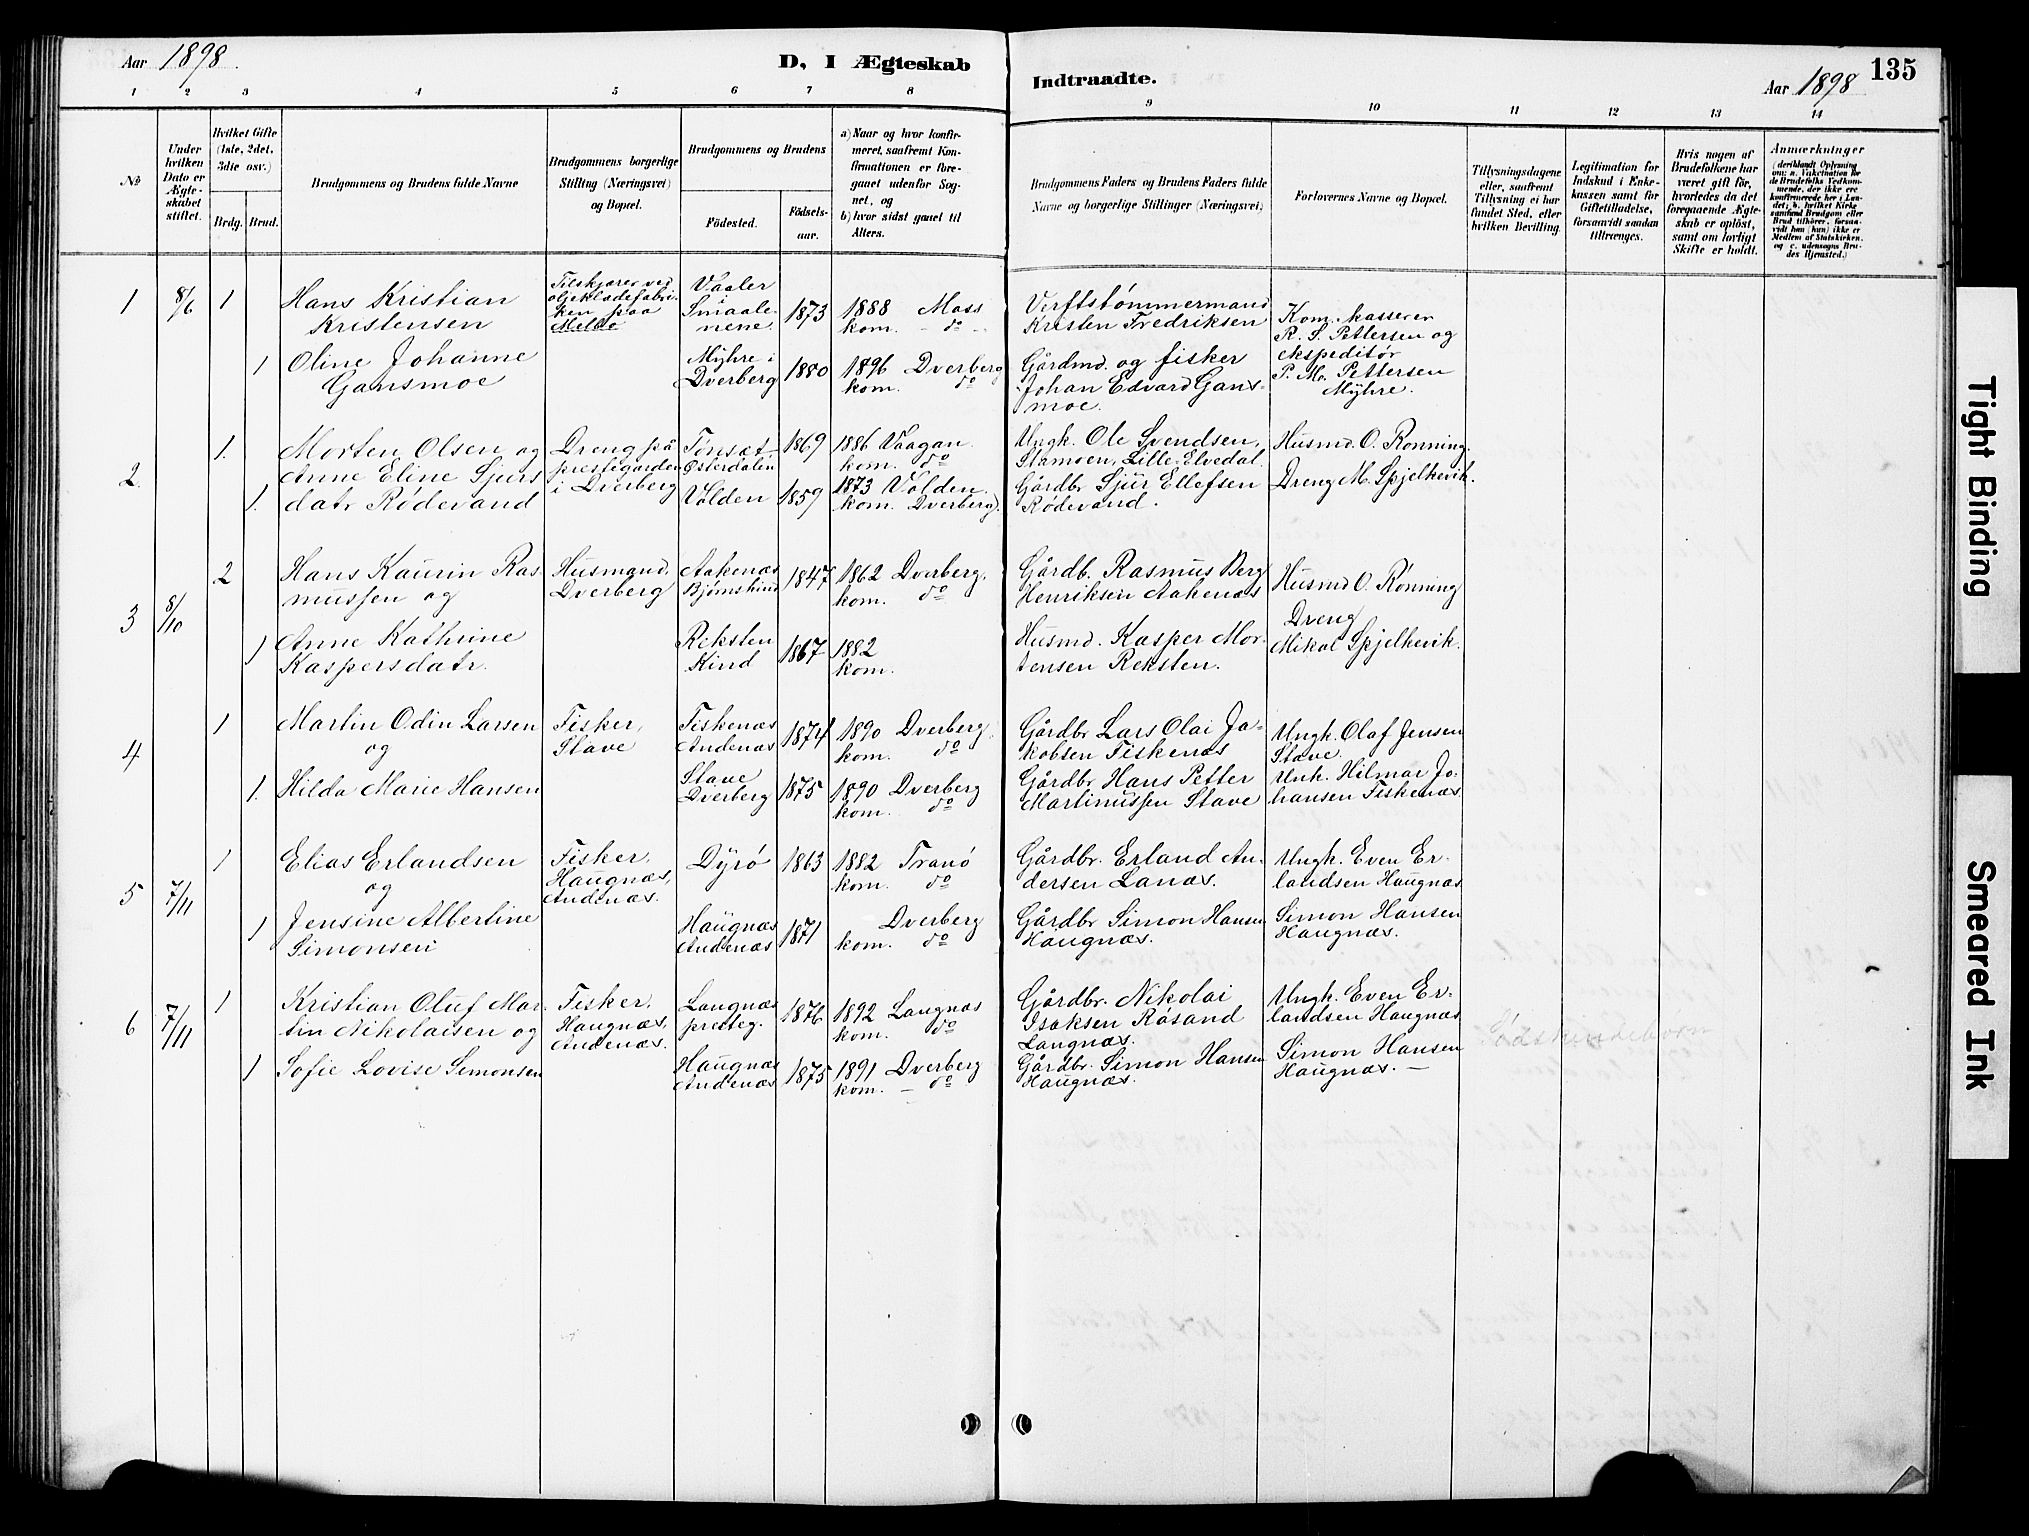 Aar 1898.
D, I Ægteskab
Indtraadte.
Aar 1898
135
1 2 3 4 5 6 7 8 9 10 11 12 13 14
No
Under hvilken Dato er Ægteskabet stiftet.
Hvilket Gifte (1ste, 2det, 3die osv.)
Brdg. Brud.
Brudgommens og Brudens fulde Navne
Brudgommens borgerlige Stilling (Næringsvei) og Bopæl.
Brudgommens og Brudens
Fødested.
Fødselsaar.
a) Naar og hvor konfirmeret, saafremt Konfirmationen er foregaaet udenfor Sognet, og
b) hvor sidst gaaet til Alters.
Brudgommens Faders og Brudens Faders fulde Navne og borgerlige Stillinger (Næringsvei)
Forlovernes Navne og Bopæl.
Tillysningsdagene eller, saafremt Tillysning ei har fundet Sted, efter hvilken Bevilling.
Legitimation for Indskud i Enkekassen samt for Giftetilladelse, forsaavidt saadan tiltrænges.
Hvis nogen af Brudefolkene har været gift før, hvorledes da det foregaaende Ægteskab er opløst, samt om lovligt Skifte er holdt.
Anmærkninger
(deriblandt Oplysning om: a. Vakcination for de Brudefolks Vedkommende, der ikke ere konfirmerede her i Landet; b. hvilket Kirkesamfund Brudgom eller Brud tilhører, forsaavidt han (hun) ikke er Medlem af Statskirken, og c. udensogns Brudes Hjemsted.)
1 8/6 1
Hans Kristian
Kristensen
oljeklædefabri-
ken paa
Melbo
Vaaler
i
Smaale-
nene
1873
1888 Moss
kom. - do -
Verftstømmermand
Kristen Fredriksen
Kom. kasserer
R. S. Pettersen og
ekspeditør
P. M. Pettersen
Myhre.
1
Oline Johanne
Gansmoe
Myhre i
Dverberg
1880
1896 Dverberg
kom. do
Gårdmd. og fisker
Johan Edvard Gans-
moe.
2. 1.
Morten Olsen og
Anne Eline Sjurs
datr Rødevand
Dreng på
prestegarden
i Dverberg
Tønset
Østerdalen
1869
1886 Vaagan.
kom. do
Ungk. Ole Svendsen,
Stamoen, Lille-Elvedal.
Husmd. O. Rønning.
1.
Volden
1859
1873 Volden.
kom. Dverberg.
Gårdbr Sjur Ellefsen
Rødevand.
Dreng M. Spjelkevik.
3 8/10 2
Hans Kaurin Ras
mussen og
Husmand.
Dverberg
Aakenæs
Bjørnskind
1847
1862 Dverberg.
kom. do
Gårdb. Rasmus Berg
Henriksen Aakenæs
Husmd O. Rønning
Dreng
Mikal Spjelkevik.
1
Anne Kathrine
Kaspersdatr.
Reksten
Kind
1867
1882
kom.
Husmd. Kasper Mor-
tensen Reksten.
4 1
Martin Odin Larsen
og
Fisker,
Stave
Fiskenæs
Andenæs
1874
1890 Dverberg.
kom. do
Gårdbr Lars Olai Ja-
kobsen Fiskenæs
Ungk. Olaf Jensen
Stave.
1.
Hilda Marie Hansen
Stave
Dverberg
1875
1890 Dverberg
kom. do
Gårdbr. Hans Petter
Martinussen Stave
Unk. Hilmar Jo-
hansen Fiskenæs.
5 7/11 1
Elias Erlandsen
og
Fisker.
Haugnæs,
Andenæs.
Dyrø
1863
1882 Tranø
kom. do
Gårdbr. Erland An-
dersen Lanæs.
Ungk. Even Er-
landsen Haugnæs
1
Jensine Albertine
Simonsen
Haugnæs
Andenæs
1871
Dverberg
kom. do
Gårdbr Simon Hansen
Haugnæs.
Simon Hansen
Haugnæs.
6 7/11 1
Kristian Oluf Mar-
tin Nikolaisen og
Fisker.
Haugnæs,
Andenæs.
Langnæs
presteg.
1876
1892 Langnæs
kom. do
Gårdbr. Nikolai
Isaksen Råsand
Langnæs.
Ungk. Even Er-
landsen Haugnæs
1
Sofie Lovise Simonsen
Haugnæs
Andenæs
1875
1891 Dverberg
kom. - do
Gårdbr. Simon Hansen
Haugnæs.
Simon Hansen
Haugnæs. -
Tight Binding
Smeared Ink